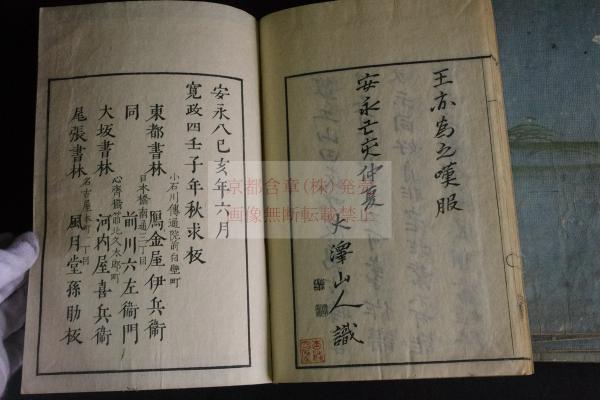 王亦為之嘆服
安永己亥仲夏 大澤山人識
安永八己亥年六月
寛政四壬子年秋求板
小石川傳通院前白壁町
東都書林 鴈金屋伊兵衞
日本橋南通三丁目
同 前川六左衞門
心齊橋筋北久太郎町
大坂書林 河内屋喜兵衞
名古屋本町一丁目
尾張書林 風月堂孫助板
京都含章(株)発売
画像無断転載禁止